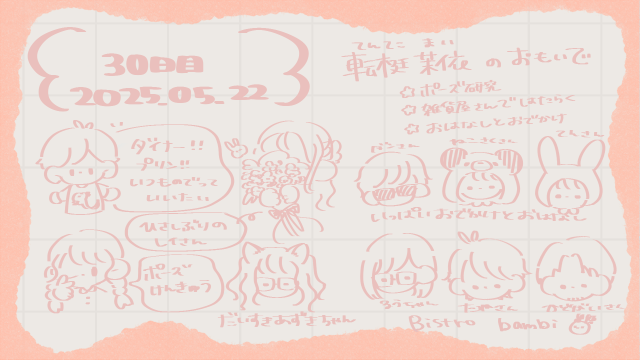 30日目
2025.05.22
てんてこ まい
転梃 菜依 のおもいで
☆ポーズ研究
☆雑貨屋さんではたらく
☆おはなしとおでかけ
ダイナー!!
プリン!!
いつものでって
いいたい
ひさしぶりの
レイさん
ポーズ
けんきゅう
だいすきあずきちゃん
ねこざくさん
てんさん
いっぱいおでかけとおはなし
るうちゃん
Bistro bambi